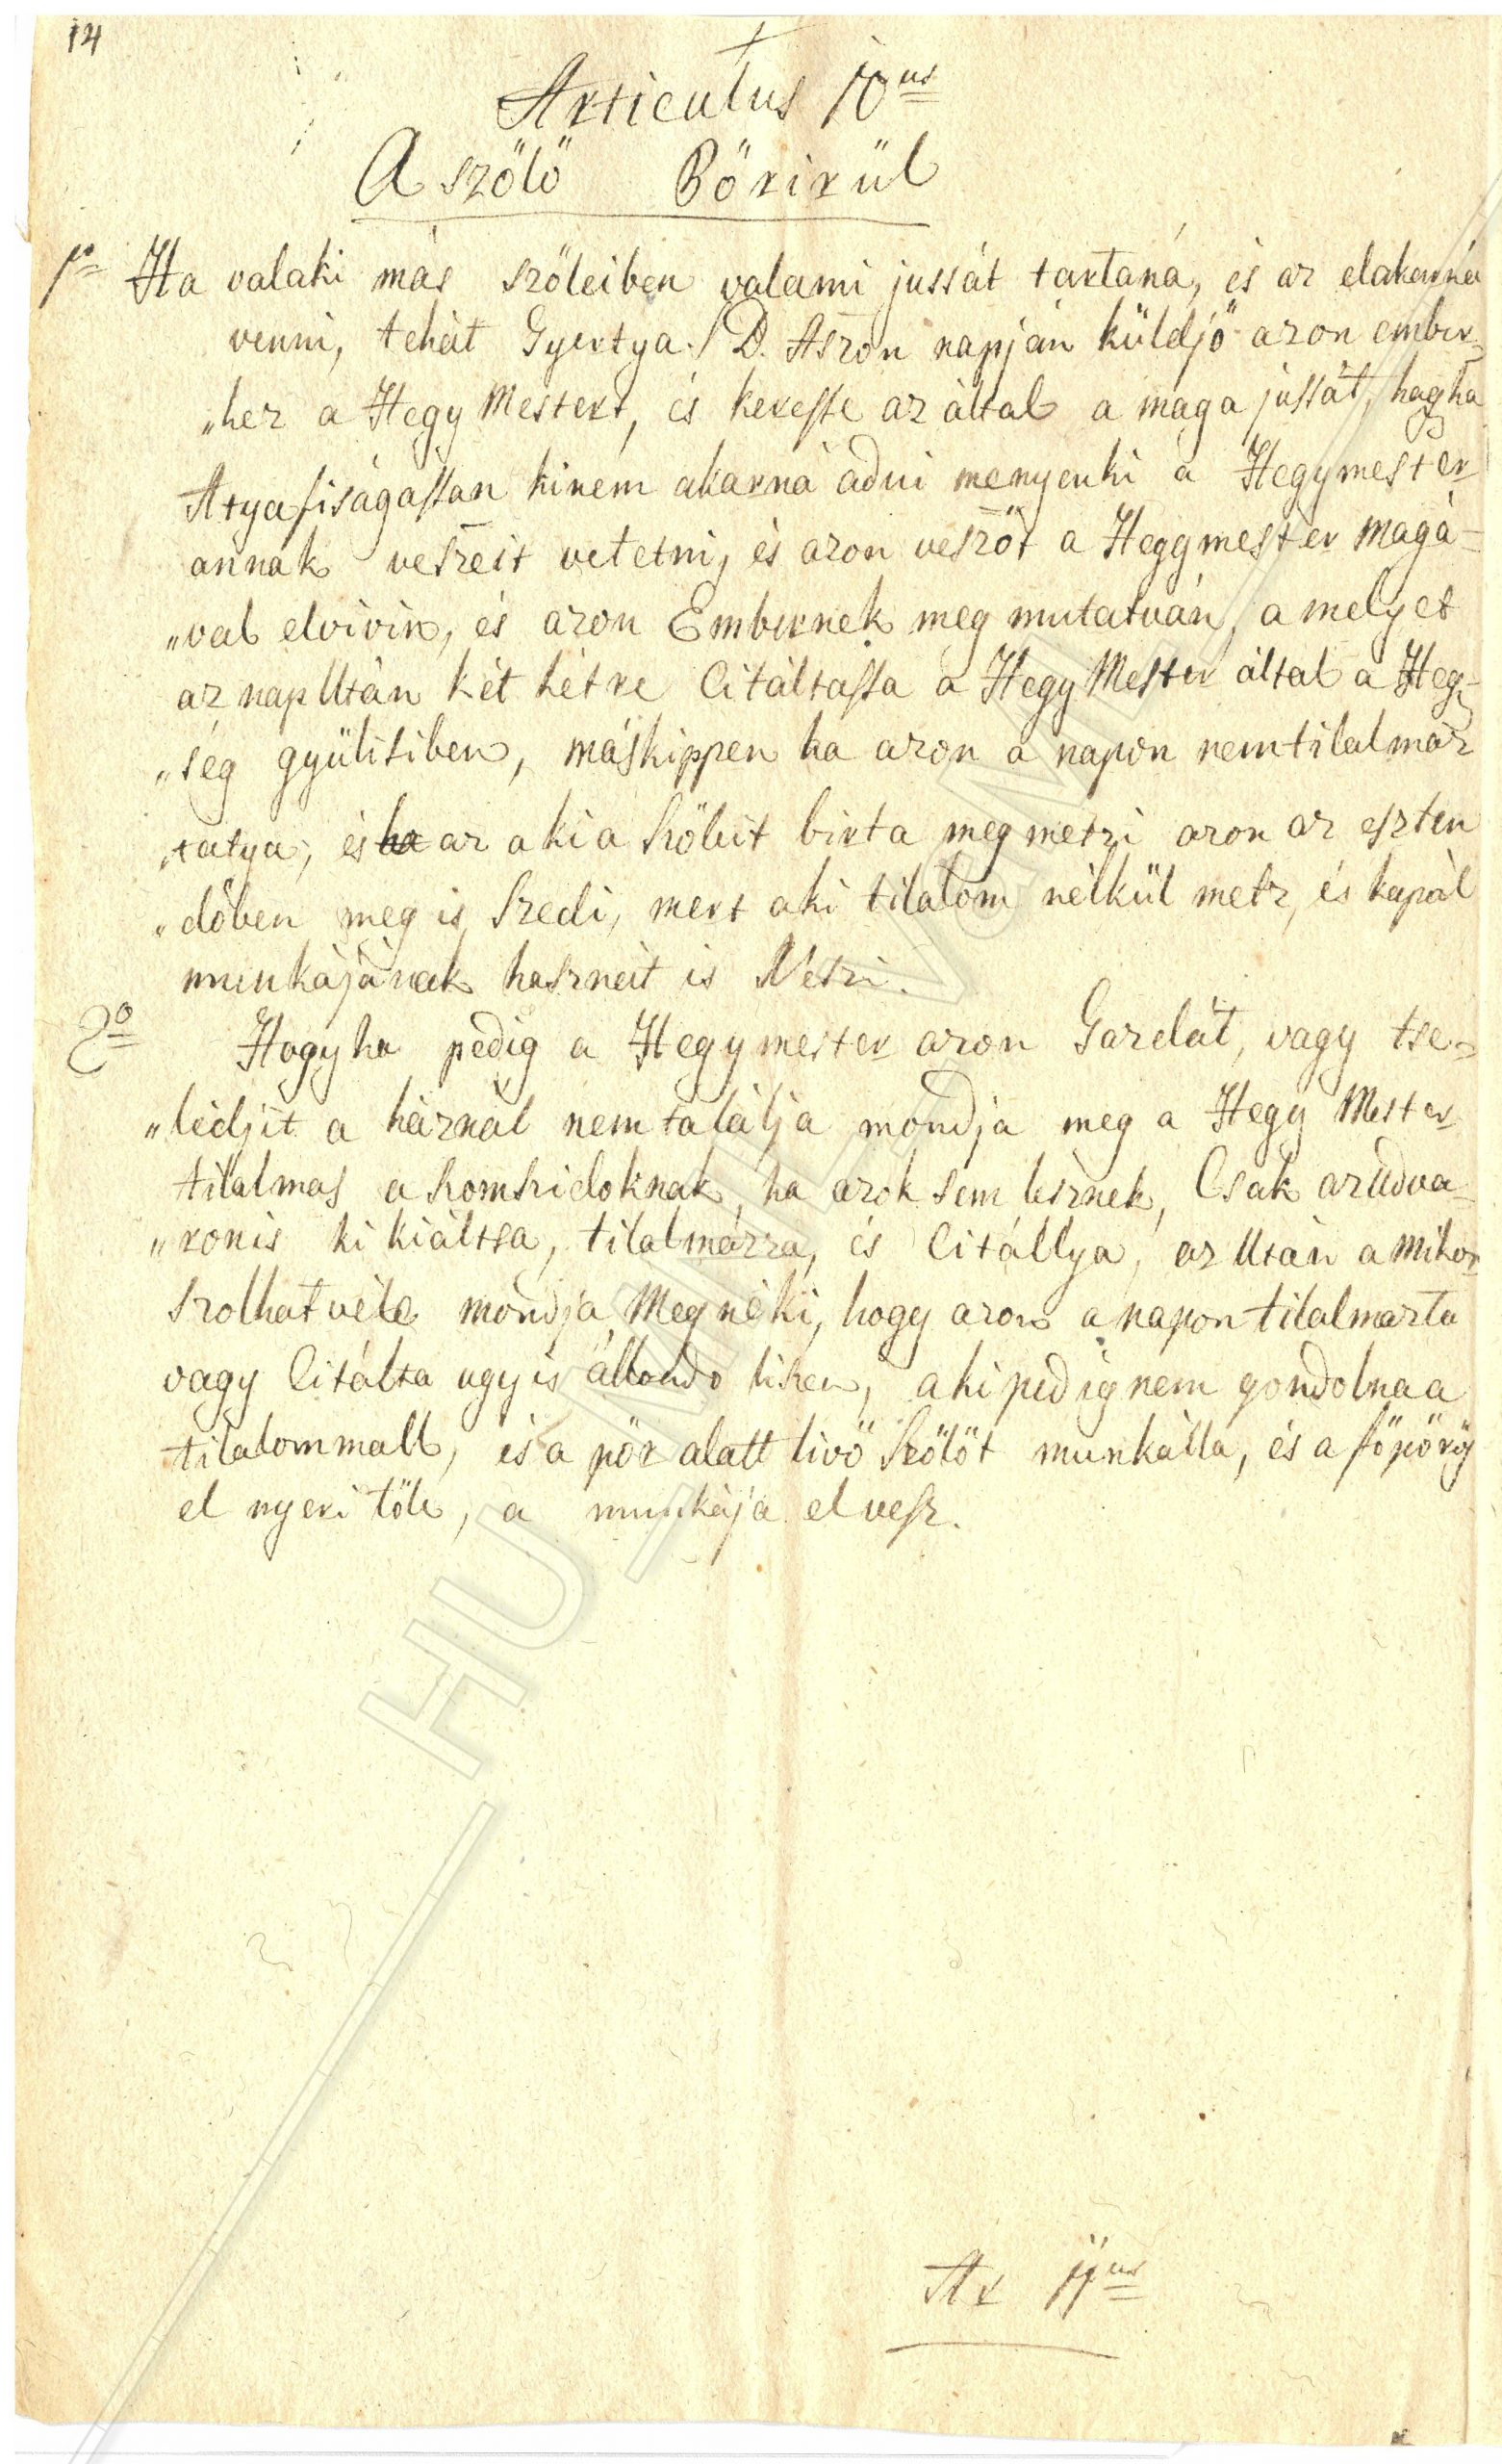 14
Articulus 10us
A szölö Pörirül
1o Ha valaki más szöleiben valami jussát tartaná, és az elakarná
venni, tehát Gyertya ./ B. Aszon napján küldjö azon ember„
„hez a Hegy Mestert, és keresse az által a maga jussát, hagha
Atyafiságassan kinem akarná adni menyenki a Hegymester
annak veszeit vetetni, és azon veszöt a Hegymester magá=
„val elvivin, és azon Embernek meg mutatván, a melyet
az nap Után két hétre Citáltassa a Hegy Mester által a Heg„
„ség gyülisiben, máskippen ha azon a napon nemtilalmáz
„tatya, és ha az aki a szöleit birta meg metzi azon az eszten
„döben meg is szedi, mert aki tilalom nélkül metz, és kapál
munkájának hasznát is Veszi.
2o Hogyha pedig a Hegymester azon Gazdát, vagy tse„
„lédjit a háznál nem talalja mondja meg a Hegy Mester
tilalmas a szomszidoknak, ha azok sem lesznek, Csak azUdva„
„ronis ki kiáltsa, tilalmázza, és Citállya, az Után a mikor
szolhat véle mondja Meg néki, hogy azon a napon tilalmazta
vagy Citálta ugy is állondo liszen, a ki pedig nem gondolna a
tilalommall, is a pör alatt livö szölöt munkálla, és a föpörös
el nyeri töle, a munkája el vesz.
Ar 11us
HU_MNL_VeML_